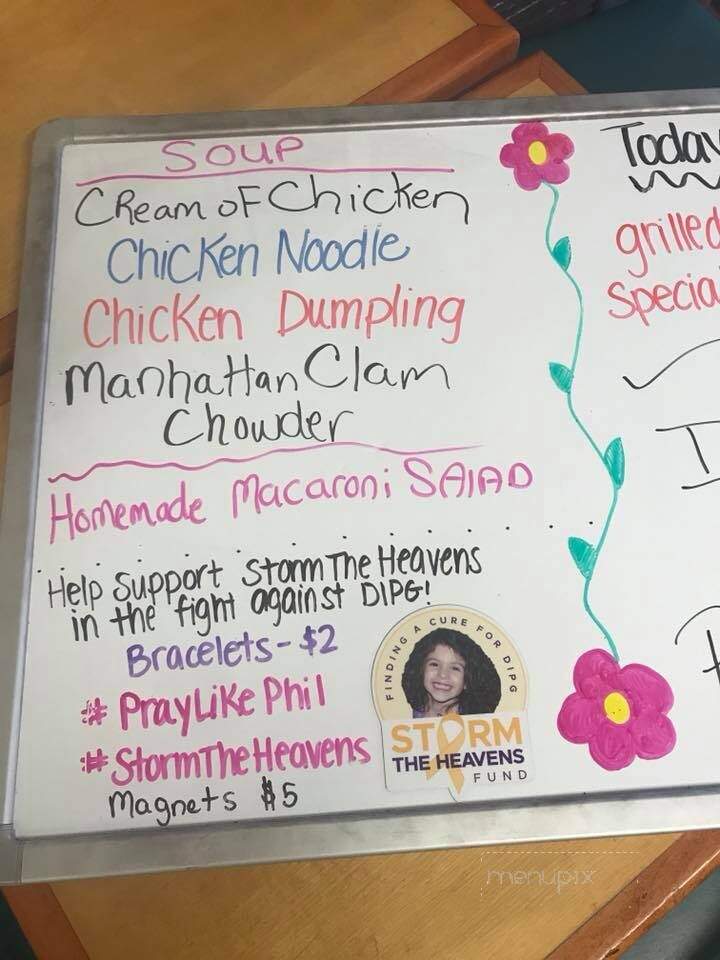 SOUP
CReam oF Chicken
Chicken Noodle
Chicken Dumpling
Manhattan Clam
Chowder
Homemade Macaroni SAlAD
Help Support Storm The Heavens
in the fight against DIPG!
Bracelets - $2
# PrayLike Phil
# StormTheHeavens
Magnets $5
FINDING A CURE FOR DIPG
STORM
THE HEAVENS
FUND
Today
grilled
Specia
menupix